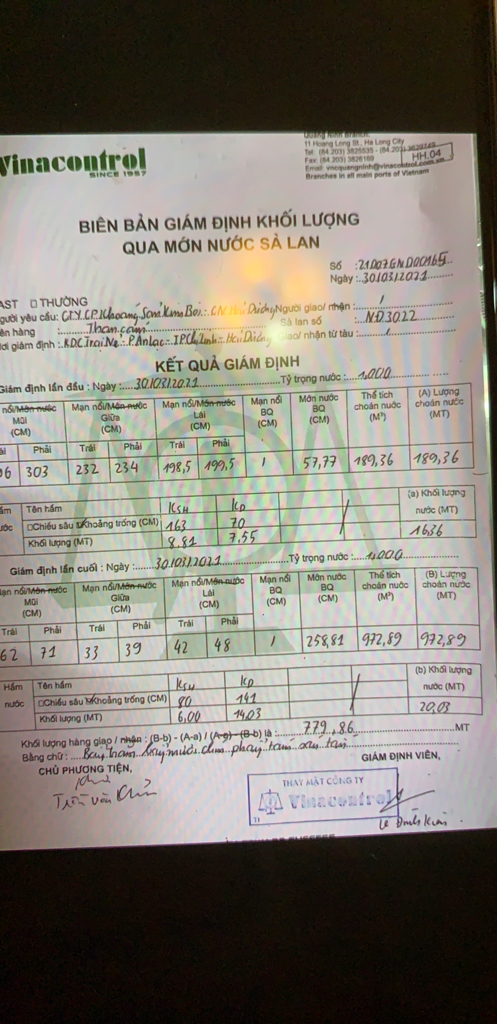 Vinacontrol
SINCE 1957
Quảng Ninh Branch:
11 Hoang Long St., Ha Long City
Tel: (84.203) 3825535 - (84.203)
Fax: (84.203) 3826169
Email: vncquangninh@vinacontrol.com.vn
Branches in all main ports of Vietnam
HH.04
BIÊN BẢN GIÁM ĐỊNH KHỐI LƯỢNG
QUA MỚN NƯỚC SÀ LAN
Số :21D07GND00165
Ngày :30/03/2021
AST □ THƯỜNG
gười yêu cầu: CTY.CP.Khoáng Sản Kim Bôi - CN Hải Dương Người giao/ nhận : /
ên hàng : Than cám Sà lan số : NĐ3022
ơi giám định : KDC Trại Nẻ - P. An Lạc - TP Chí Linh - Hải Dương Giao/ nhận từ tàu : /
KẾT QUẢ GIÁM ĐỊNH
Giám định lần đầu : Ngày : 30/03/2021 Tỷ trọng nước : 1,000
nổi/Mớn nước Mũi (CM) Mạn nổi/Mớn nước Giữa (CM) Mạn nổi/Mớn nước Lái (CM) Mạn nổi BQ (CM) Mớn nước BQ (CM) Thể tích choán nước (M³) (A) Lượng choán nước (MT)
ái Phải Trái Phải Trái Phải
06 303 232 234 198,5 199,5 / 57,77 189,36 189,36
ầm Tên hầm KSH KD (a) Khối lượng
ước □Chiều sâu Khoảng trống (CM) 163 70 nước (MT)
Khối lượng (MT) 8.81 7.55 1636
Giám định lần cuối : Ngày : 30/03/2021 Tỷ trọng nước : 1,000
ạn nổi/Mớn nước Mũi (CM) Mạn nổi/Mớn nước Giữa (CM) Mạn nổi/Mớn nước Lái (CM) Mạn nổi BQ (CM) Mớn nước BQ (CM) Thể tích choán nước (M³) (B) Lượng choán nước (MT)
Trái Phải Trái Phải Trái Phải
62 71 33 39 42 48 / 258,81 972,89 972,89
Hầm Tên hầm KSH KD (b) Khối lượng
nước □Chiều sâu Khoảng trống (CM) 80 141 nước (MT)
Khối lượng (MT) 6,00 14,03 20,03
Khối lượng hàng giao / nhận : (B-b) - (A-a) / (A-a) - (B-b) là : 779,86 MT
Bằng chữ : Bảy trăm bảy mươi chín phẩy tám sáu tấn
CHỦ PHƯƠNG TIỆN, GIÁM ĐỊNH VIÊN,
Trần Văn
THAY MẶT CÔNG TY
Vinacontrol
Lê Đình